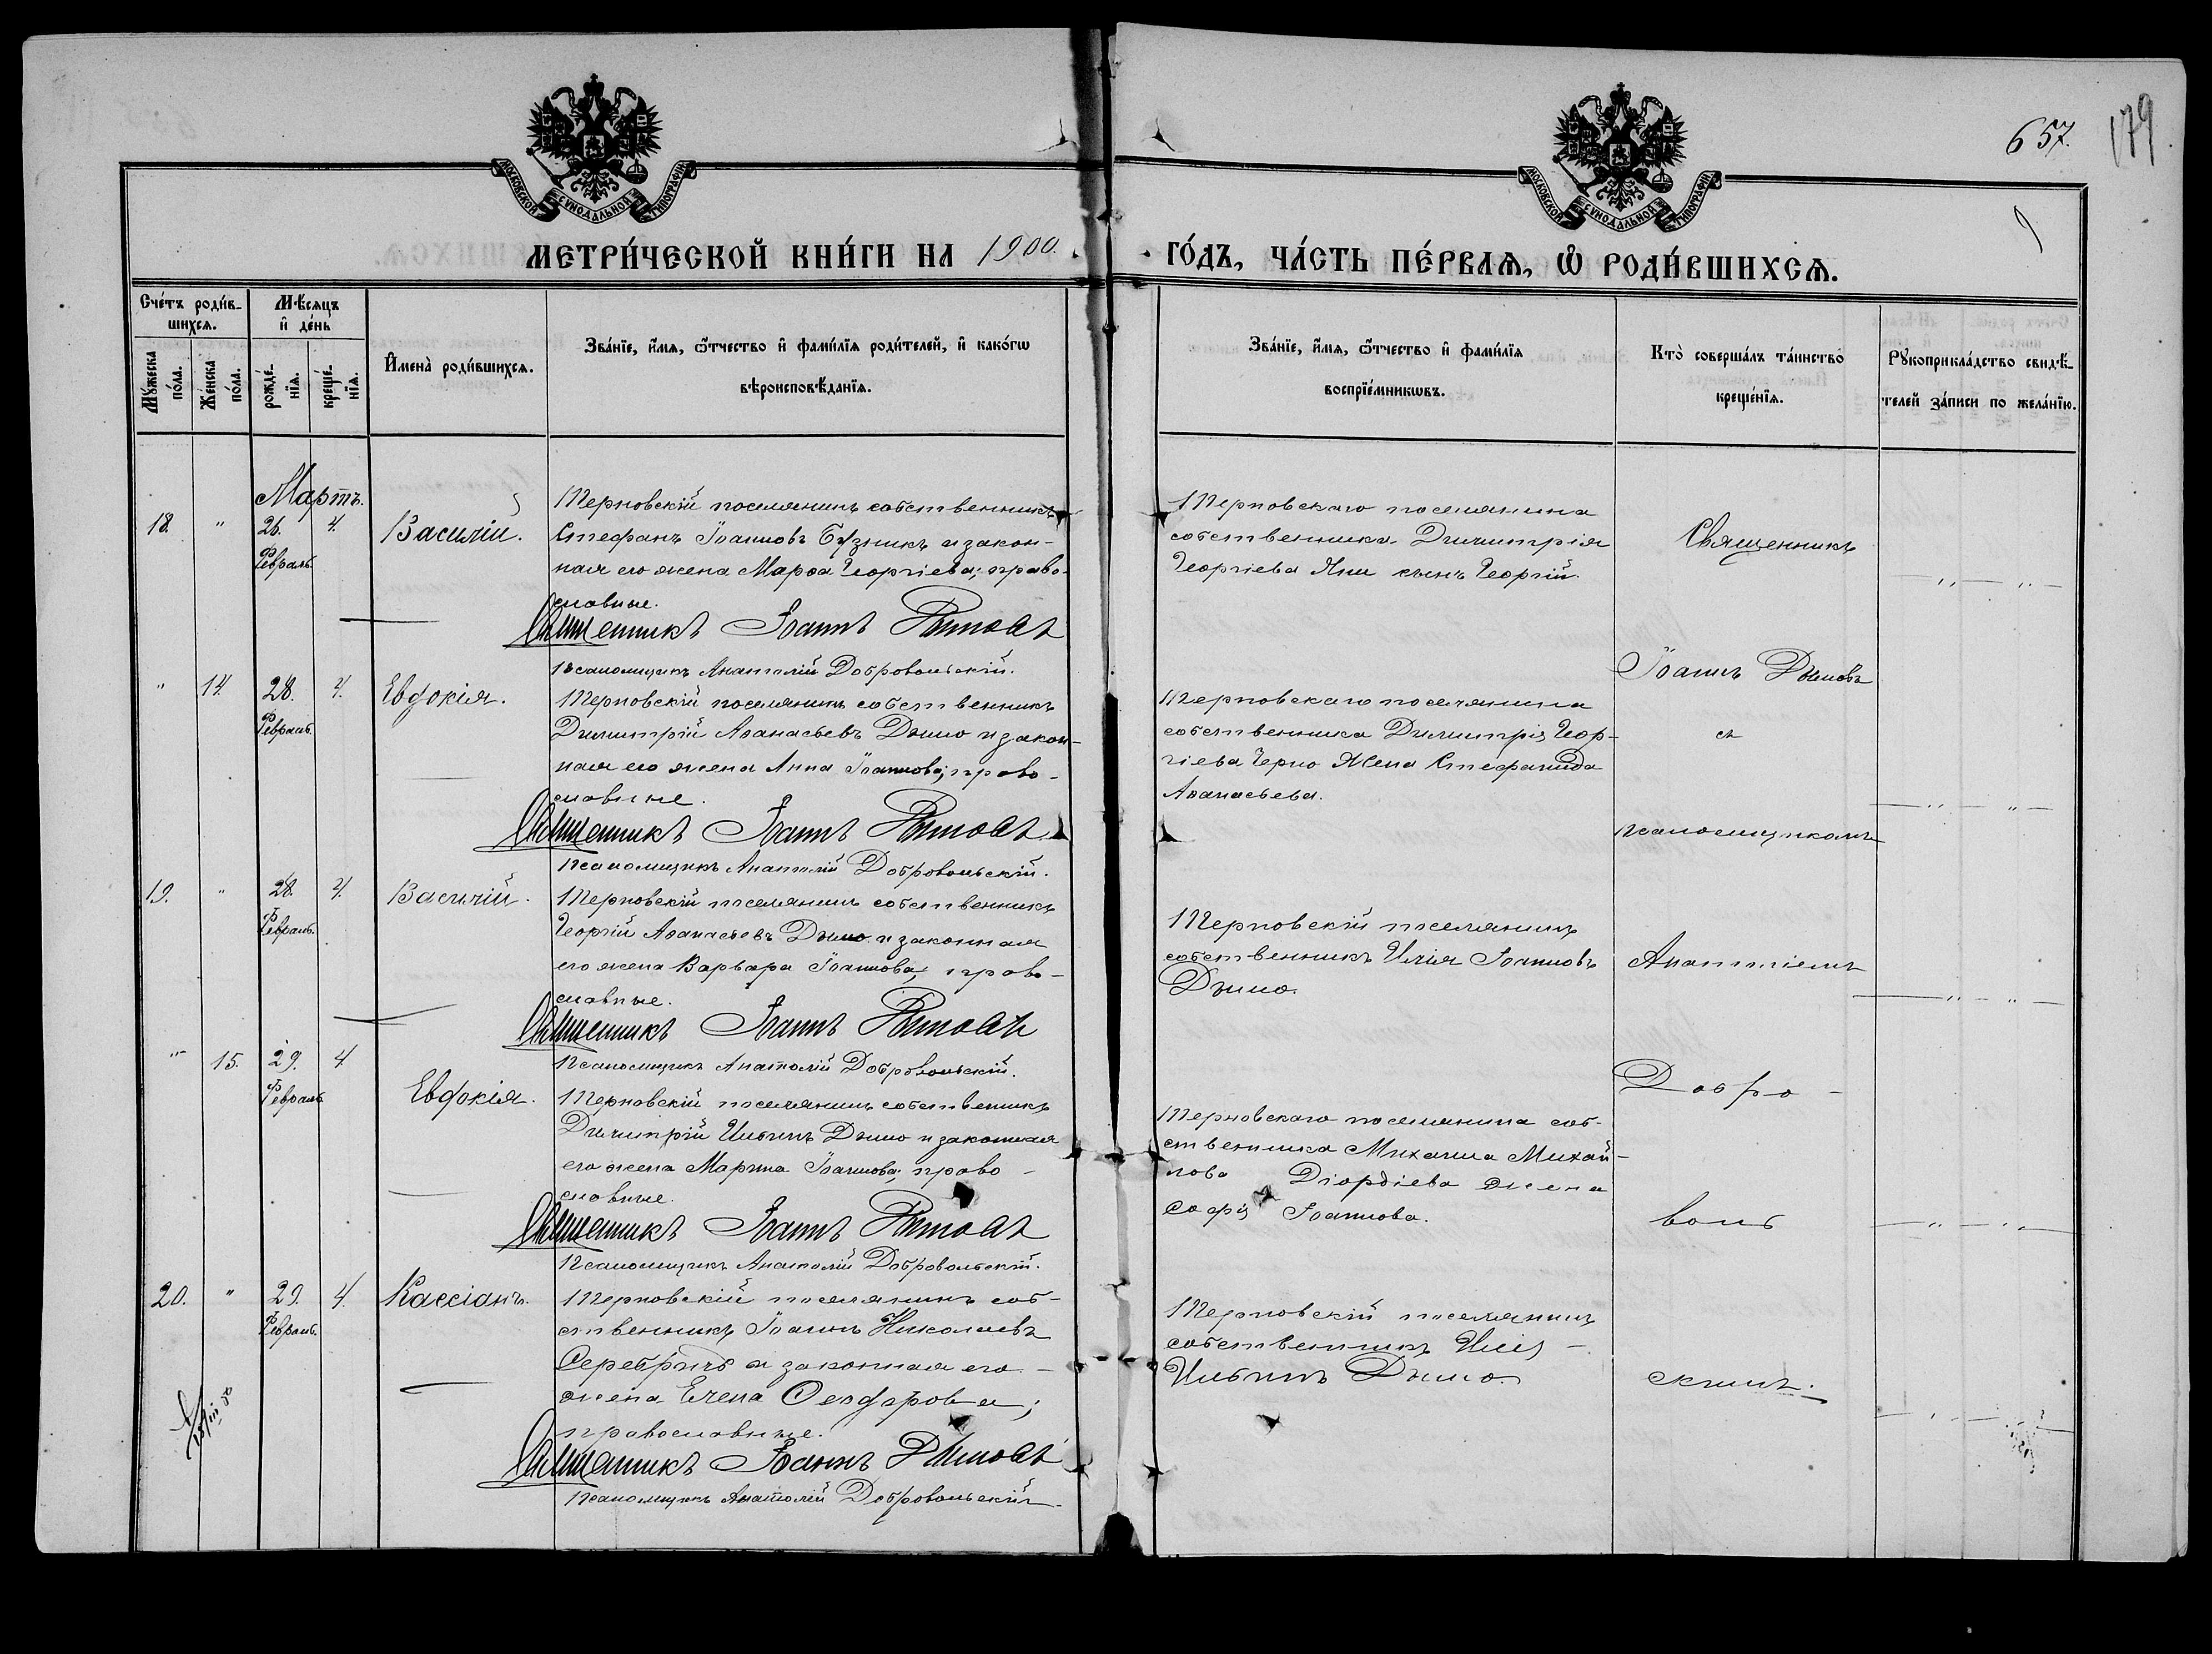 657.
179
МОСКОВСКОЙ СѴНОДАЛЬНОЙ ТИПОГРАФІИ
МОСКОВСКОЙ СѴНОДАЛЬНОЙ ТИПОГРАФІИ
МЕТРИ́ЧЕСКОЙ КНИ́ГИ НА 1900. ГО́ДЪ, ЧА́СТЬ ПЕ́РВАѦ, Ѡ҆ РОДИ́ВШИХСѦ.
Сче́тъ роди́в-
шихсѧ.
Мꙋ́жеска по́ла.
Же́нска по́ла.
Мѣ́сѧцъ
и҆ де́нь
рожде́-
нїѧ.
креще́-
нїѧ.
И҆мена̀ роди́вшихсѧ.
Зва́нїе, и҆́мѧ, ѻ҆́тчество и҆ фами́лїѧ роди́телей, и҆ како́гѡ
вѣроисповѣ́данїѧ.
Зва́нїе, и҆́мѧ, ѻ҆́тчество и҆ фами́лїѧ
воспрїе́мникѡвъ.
Кто̀ соверша́лъ та́инство
креще́нїѧ.
Рꙋкоприкла́дство свидѣ́-
телей за́писи по жела́нїю.
Мартъ.
18. " 26. 4. Василій.
Февраль.
Терновскій поселянинъ собственникъ
Стефанъ Іоанновъ Бузникъ и закон-
ная его жена Марѳа Георгіева; право-
славные.
Священникъ Іоаннъ Дымовъ
Псаломщикъ Анатолій Добровольскій.
Терновскаго поселянина
собственника Димитрія
Георгіева Яни сынъ Георгій.
" 14. 28. 4. Евдокія.
Февраль.
Терновскій поселянинъ собственникъ
Димитрій Аѳанасьевъ Дымо и закон-
ная его жена Анна Іоаннова; право-
славные.
Священникъ Іоаннъ Дымовъ
Псаломщикъ Анатолій Добровольскій.
Терновскаго поселянина
собственника Димитрія Геор-
гіева Черно жена Стефанида
Аѳанасьева.
19. " 28. 4. Василій.
Февраль.
Терновскій поселянинъ собственникъ
Георгій Аѳанасьевъ Дымо и законная
его жена Варвара Іоаннова; право-
славные.
Священникъ Іоаннъ Дымовъ
Псаломщикъ Анатолій Добровольскій.
Терновскій поселянинъ
собственникъ Илія Іоанновъ
Дымо.
" 15. 29. 4. Евдокія.
Февраль.
Терновскій поселянинъ собственникъ
Димитрій Ильинъ Дымо и законная
его жена Марина Іоаннова; право-
славные.
Священникъ Іоаннъ Дымовъ
Псаломщикъ Анатолій Добровольскій.
Терновскаго поселянина соб-
ственника Михаила Михай-
лова Діордіева жена
Софія Іоаннова.
20. " 29. 4. Кассіанъ.
Февраль.
Терновскій поселянинъ соб-
ственникъ Іоаннъ Николаевъ
и законная его
жена Елена Ѳеодорова;
православные.
Священникъ Іоаннъ Дымовъ
Псаломщикъ Анатолій Добровольскій.
Терновскій поселянинъ
собственникъ Илія
Ильинъ Дымо.
Священникъ
Іоаннъ Дымовъ
съ
псаломщикомъ
Анатоліемъ
Добро-
воль
скимъ.